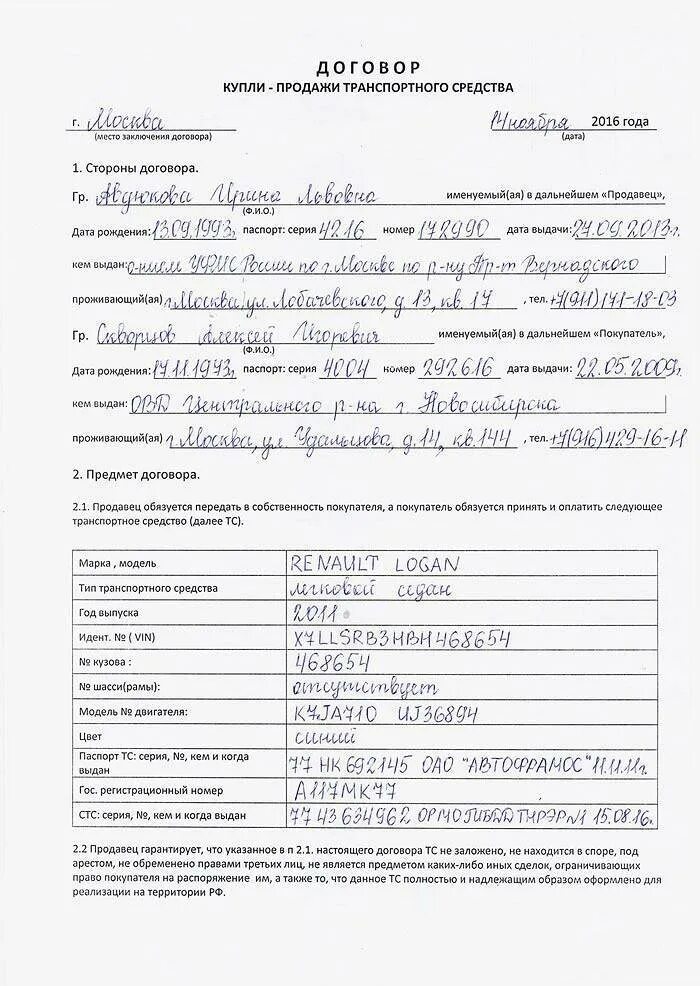 ДОГОВОР
КУПЛИ - ПРОДАЖИ ТРАНСПОРТНОГО СРЕДСТВА
г. Москва 14 ноября 2016 года
(место заключения договора) (дата)
1. Стороны договора.
Гр. Авдюкова Ирина Львовна именуемый(ая) в дальнейшем «Продавец»,
(Ф.И.О.)
Дата рождения: 13.09.1993г. паспорт: серия 4216 номер 172990 дата выдачи: 27.09.2013г.
кем выдан: о-нием УФМС России по г. Москве по р-ну Пр-т Вернадского
проживающий(ая) г. Москва, ул. Лобачевского, д. 13, кв. 17 , тел. +7(911)171-18-03
Гр. Скворцов Алексей Игоревич именуемый(ая) в дальнейшем «Покупатель»,
(Ф.И.О.)
Дата рождения: 17.11.1973г. паспорт: серия 4004 номер 292616 дата выдачи: 22.05.2009г.
кем выдан: ОВД Центрального р-на г. Новосибирска
проживающий(ая) г. Москва, ул. Удальцова, д. 14, кв. 144 , тел. +7(916)429-16-11
2. Предмет договора.
2.1. Продавец обязуется передать в собственность покупателя, а покупатель обязуется принять и оплатить следующее
транспортное средство (далее ТС).
Марка , модель RENAULT LOGAN
Тип транспортного средства легковой седан
Год выпуска 2011
Идент. № ( VIN) X7LLSRB3HBH468654
№ кузова : 468654
№ шасси(рамы): отсутствует
Модель № двигателя: K7JA710 UJ36894
Цвет синий
Паспорт ТС: серия, №, кем и когда
выдан 77 НК 692145 ОАО "АВТОФРАМОС" 11.11.11г.
Гос. регистрационный номер А117МК77
СТС: серия, №, кем и когда выдан 77 43 634962 ОРМО ГИБДД ТНРЭР№1 15.08.16г.
2.2 Продавец гарантирует, что указанное в п 2.1. настоящего договора ТС не заложено, не находится в споре, под
арестом, не обременено правами третьих лиц, не является предметом каких-либо иных сделок, ограничивающих
право покупателя на распоряжение им, а также то, что данное ТС полностью и надлежащим образом оформлено для
реализации на территории РФ.